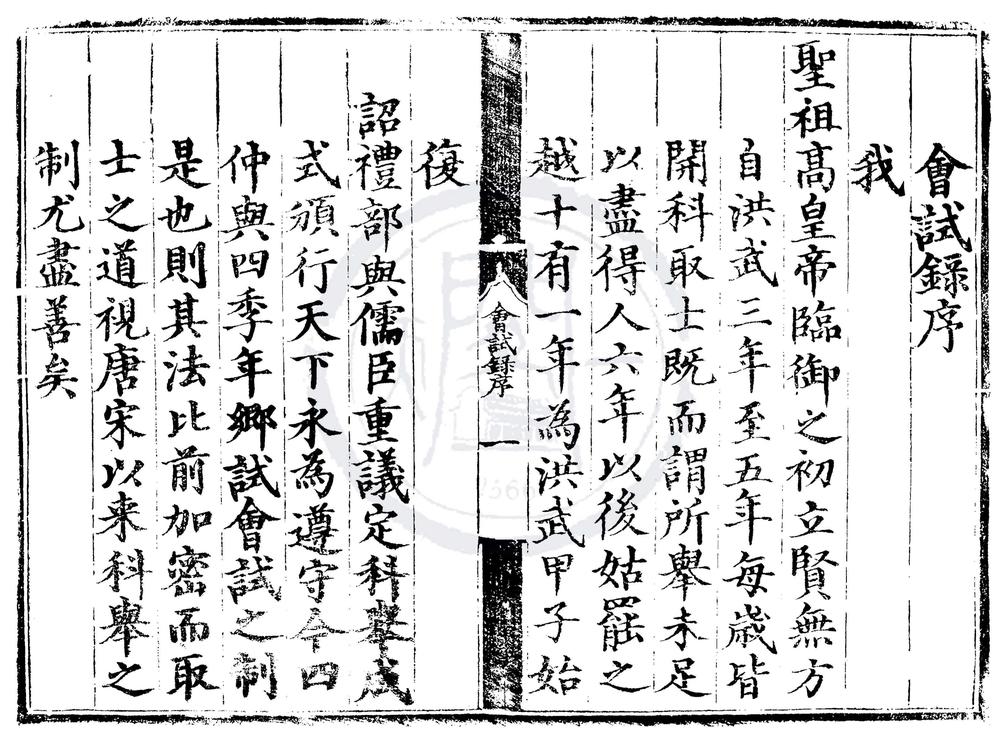 會試錄序
我
聖祖高皇帝臨御之初立賢無方
自洪武三年至五年每歲皆
開科取士既而謂所舉未足
以盡得人六年以後姑罷之
越十有一年為洪武甲子始
會試錄序
一
復
詔禮部與儒臣重議定科舉成
式頒行天下永為遵守今四
仲與四季年鄉試會試之制
是也則其法比前加密而取
士之道視唐宋以来科舉之
制尤盡善矣